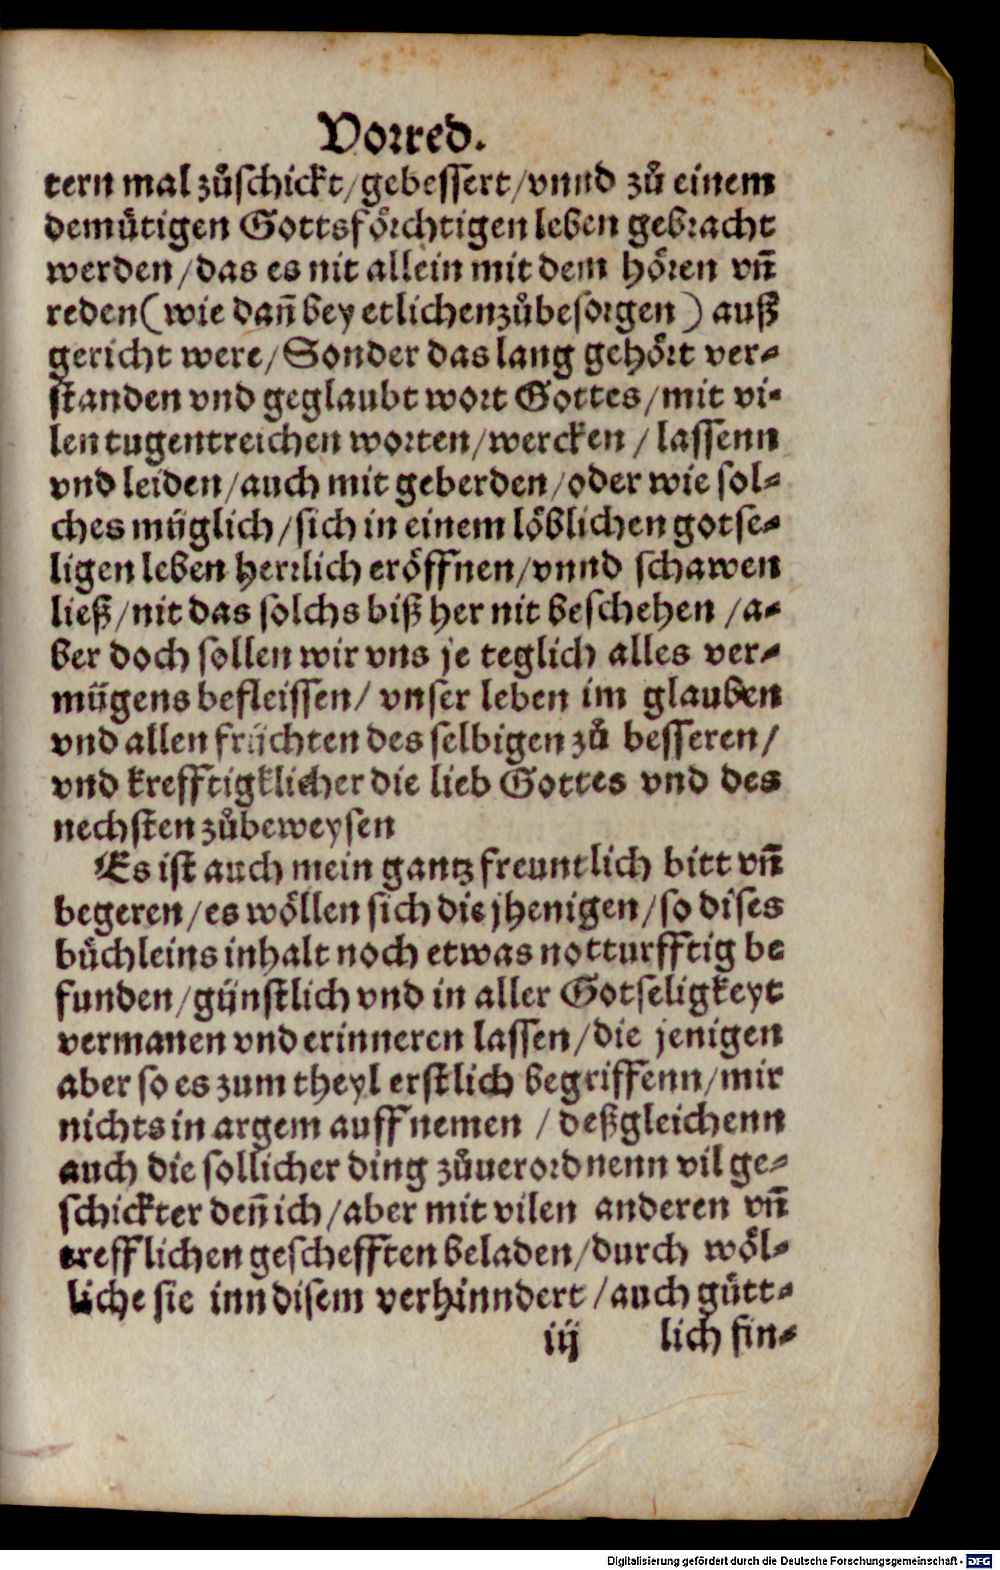 Vorred.
tern mal zůschickt/gebessert/vnnd zů einem
demůtigen Gottsförchtigen leben gebracht
werden/das es nit allein mit dem hören vñ
reden(wie dañ bey etlichenzůbesorgen) auß
gericht were/Sonder das lang gehört ver-
standen vnd geglaubt wort Gottes/mit vi-
len tugentreichen worten/wercken/lassenn
vnd leiden/auch mit geberden/oder wie sol-
ches müglich/sich in einem löblichen gotse-
ligen leben herrlich eröffnen/vnnd schawen
ließ/nit das solchs biß her nit beschehen/a-
ber doch sollen wir vns je teglich alles ver-
mügens befleissen/ vnser leben im glauben
vnd allen früchten des selbigen zů besseren/
vnd krefftigklicher die lieb Gottes vnd des
nechsten zůbeweysen
Es ist auch mein gantz freuntlich bitt vñ
begeren/es wöllen sich die jhenigen/so dises
bůchleins inhalt noch etwas notturfftig be
funden/günstlich vnd in aller Gotseligkeyt
vermanen vnd erinneren lassen/die jenigen
aber so es zum theyl erstlich begriffenn/mir
nichts in argem auffnemen / deßgleichenn
auch die sollicher ding zůuerordnenn vil ge-
schickter deñ ich/aber mit vilen anderen vñ
trefflichen geschefften beladen/durch wöl-
liche sie inn disem verhinndert/auch gůtt-
iij lich fin-
Digitalisierung gefördert durch die Deutsche Forschungsgemeinschaft - DFG